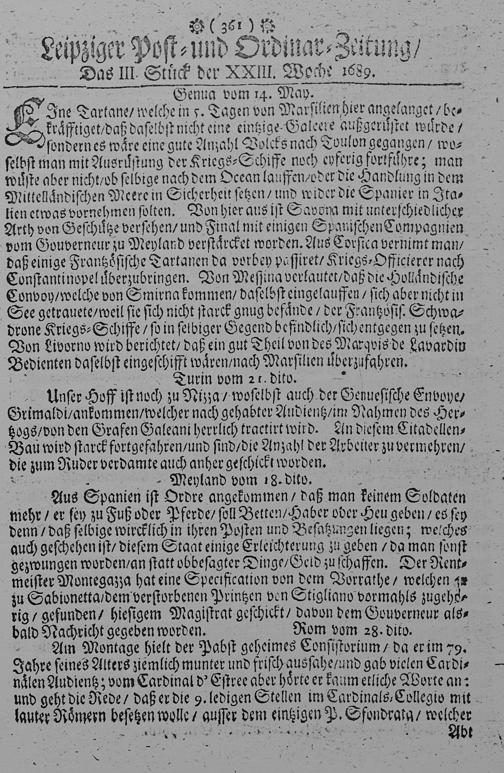 ( 361 )
Leipziger Post- und Ordinar-Zeitung/
Das III. Stück der XXIII. Woche 1689.
Genua vom 14. May.
EIne Tartane/ welche in 5. Tagen von Marsilien hier angelanget/ be-
kräfftiget/ daß daselbst nicht eine eintzige Galeere außgerüstet würde/
sondern es wäre eine gute Anzahl Volcks nach Toulon gegangen/ wo-
selbst man mit Ausrüstung der Kriegs-Schiffe noch eyferig fortführe; man
wüste aber nicht/ ob selbige nach dem Ocean lauffen/ oder die Handlung in dem
Mittelländischen Meere in Sicherheit setzen/ und wider die Spanier in Ita-
lien etwas vornehmen solten. Von hier aus ist Savona mit unterschiedlicher
Arth von Geschütze versehen/ und Final mit einigen Spanischen Compagnien
vom Gouverneur zu Meyland verstärcket worden. Aus Corsica vernimt man/
daß einige Frantzösische Tartanen da vorbey passiret/ Kriegs-Officierer nach
Constantinopel überzubringen. Von Messina verlautet/ daß die Holländische
Convoy/ welche von Smirna kommen/ daselbst eingelauffen/ sich aber nicht in
See getrauete/ weil sie sich nicht starck gnug befände/ der Frantzösis. Schwa-
drone Kriegs-Schiffe/ so in selbiger Gegend befindlich/ sich entgegen zu setzen.
Von Livorno wird berichtet/ daß ein gut Theil von des Marqvis de Lavardin
Bedienten daselbst eingeschifft wären/ nach Marsilien überzufahren.
Turin vom 21. dito.
Unser Hoff ist noch zu Nizza/ woselbst auch der Genuesische Envoye/
Grimaldi/ ankommen/ welcher nach gehabter Audientz/ im Nahmen des Her-
tzogs/ von den Grafen Galeani herrlich tractirt wird. An diesem Citadellen-
Bau wird starck fortgefahren/ und sind/ die Anzahl der Arbeiter zu vermehren/
die zum Ruder verdamte auch anher geschickt worden.
Meyland vom 18. dito.
Aus Spanien ist Ordre angekommen/ daß man keinem Soldaten
mehr/ er sey zu Fuß oder Pferde/ soll Betten/ Haber oder Heu geben/ es sey
denn/ daß selbige wircklich in ihren Posten und Besatzungen liegen; welches
auch geschehen ist/ diesem Staat einige Erleichterung zu geben/ da man sonst
gezwungen worden/ an statt obbesagter Dinge/ Geld zu schaffen. Der Rent-
meister Montegazza hat eine Specification von dem Vorrathe/ welchen
zu Sabionetta/ dem verstorbenen Printzen von Stigliano vormahls zugehö-
rig/ gefunden/ hiesigem Magistrat geschickt/ davon dem Gouverneur als-
bald Nachricht gegeben worden. Rom vom 28. dito.
Am Montage hielt der Pabst geheimes Consistorium/ da er im 79.
Jahre seines Alters ziemlich munter und frisch aussahe/ und gab vielen Cardi-
nälen Audientz; vom Cardinal d'Estree aber hörte er kaum etliche Worte an:
und geht die Rede/ daß er die 9. ledigen Stellen im Cardinals-Collegio mit
lauter Römern besetzen wolle/ ausser dem eintzigen P. Sfondrata/ welcher
Abt